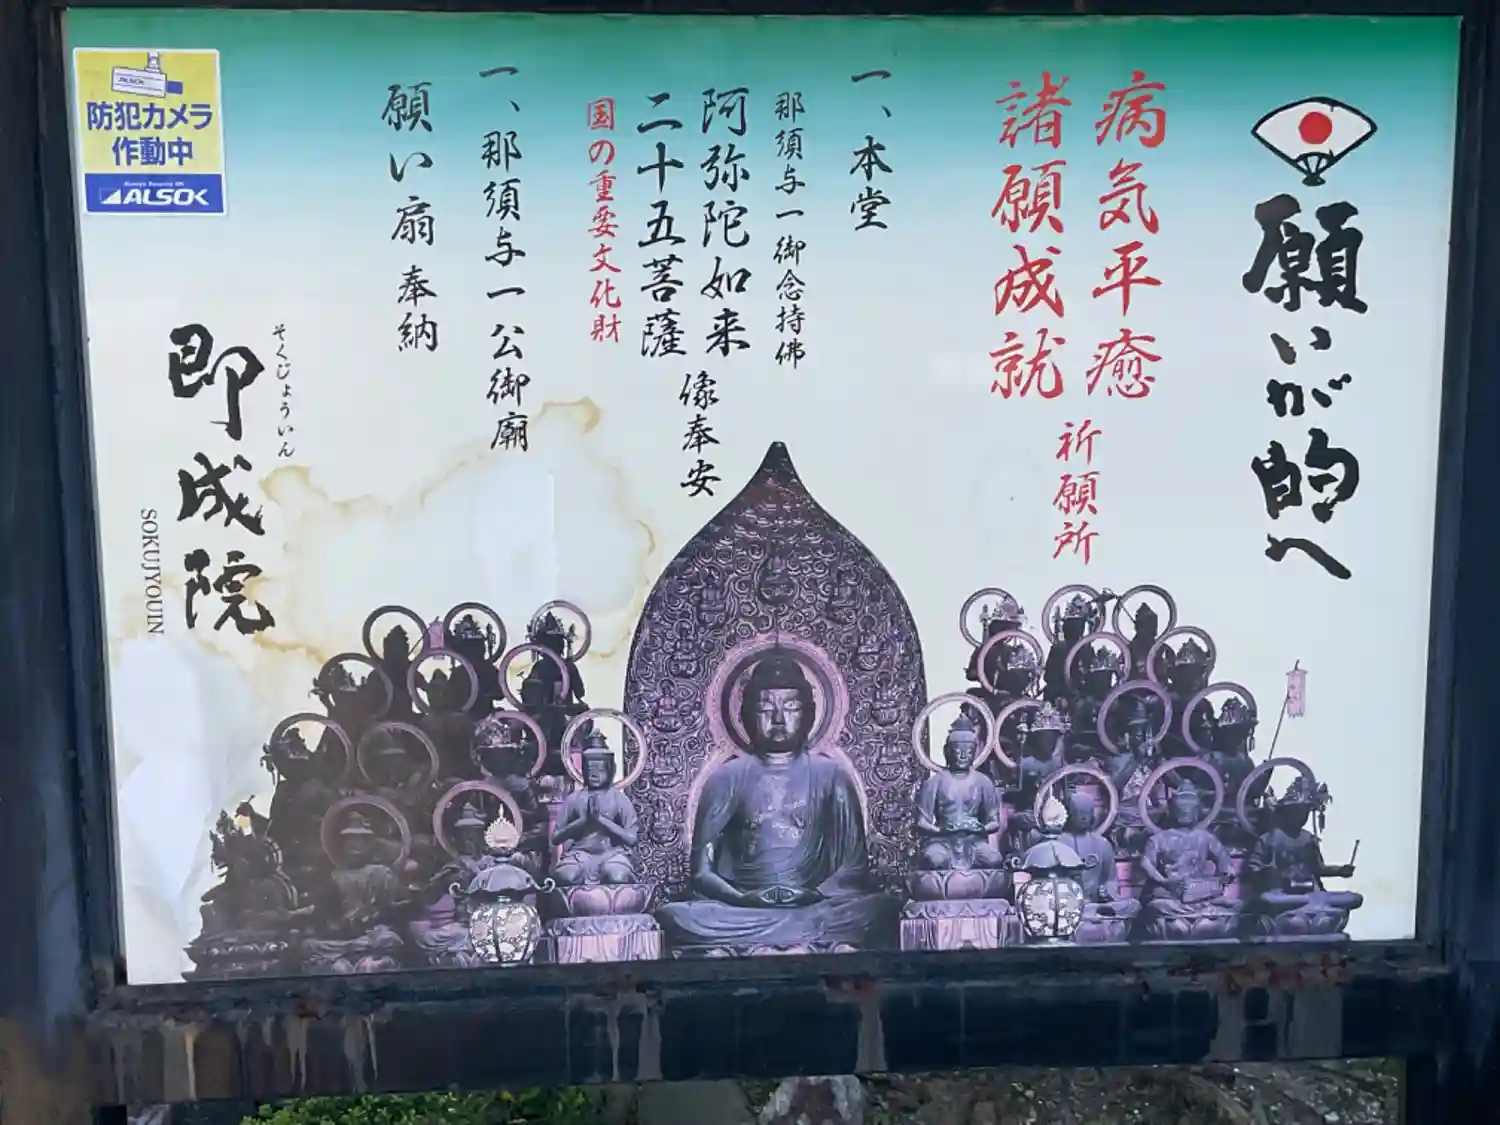 願いが的へ
病気平癒
諸願成就
祈願所
一、本堂
那須与一御念持佛
阿弥陀如来
二十五菩薩
像奉安
国の重要文化財
一、那須与一公御廟
願い扇奉納
そくじょういん
即成院
SOKUJYOUIN
ALSOK
防犯カメラ
作動中
Always Security OK
ALSOK